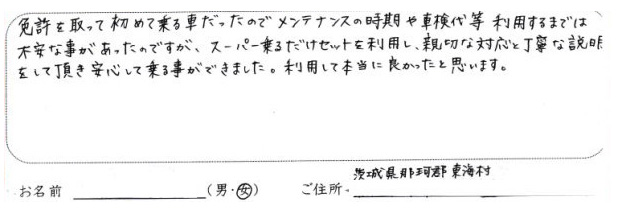 免許を取って初めて乗る車だったのでメンテナンスの時期や車検代等利用するまでは
不安な事があったのですが、スーパー乗るだけセットを利用し、親切な対応と丁寧な説明
をして頂き安心して乗る事ができました。利用して本当に良かったと思います。
茨城県那珂郡東海村
お名前 (男・女) ご住所